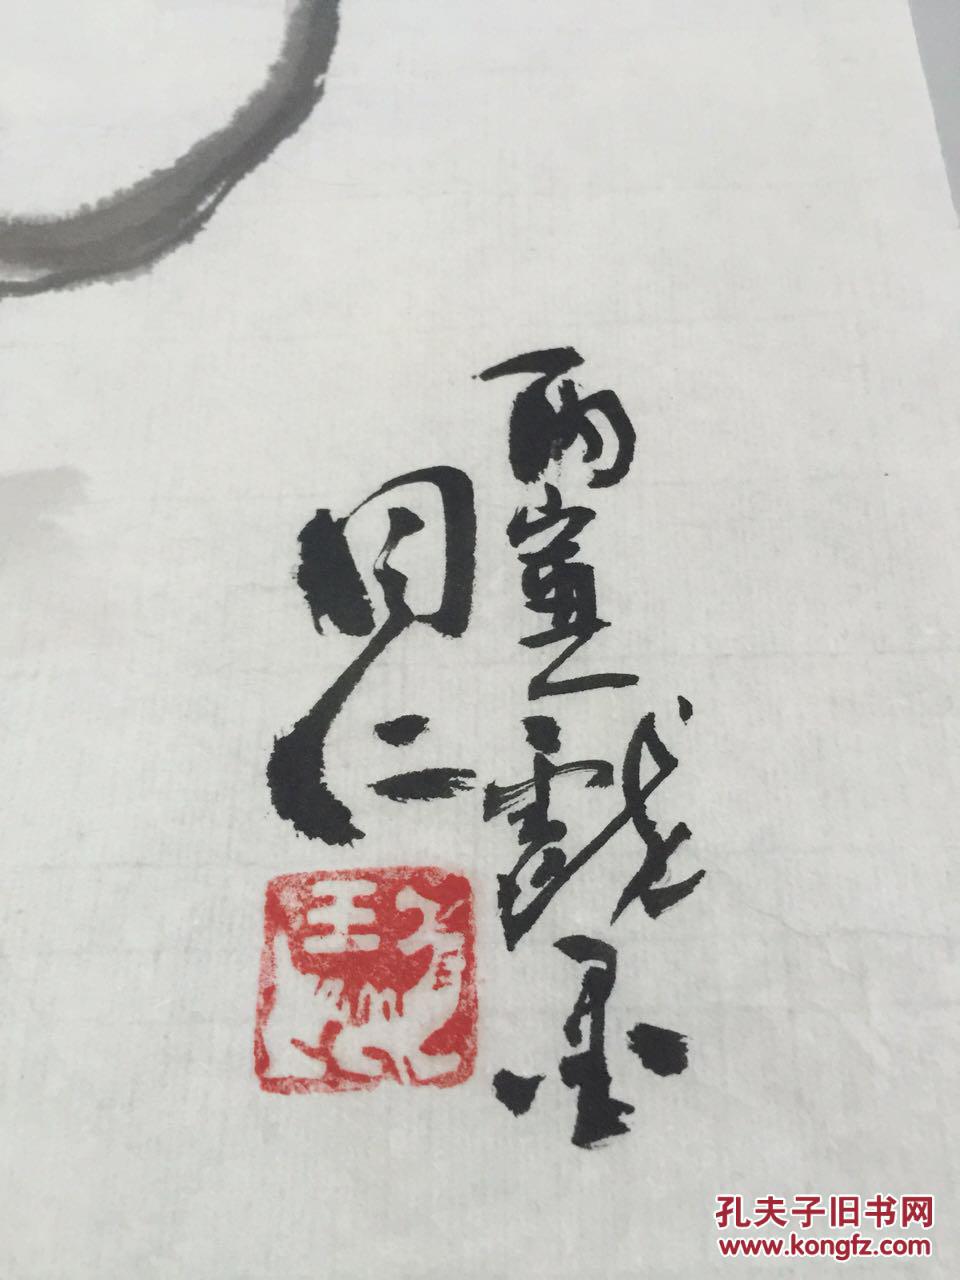 雨萱戏墨
同仁
王
孔夫子旧书网
www.kongfz.com